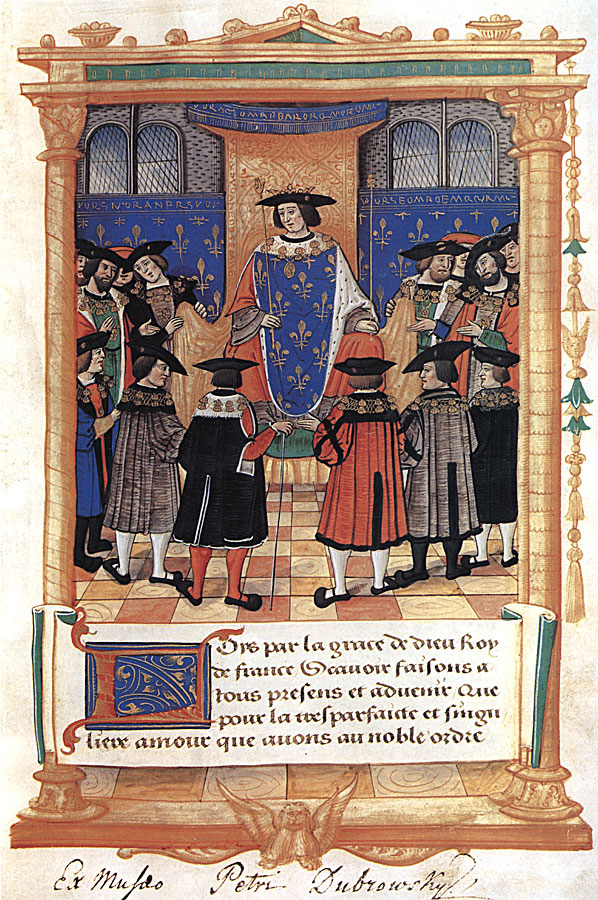 LOys par la grace de dieu Roy
de france Scavoir faisons a
tous presens et advenir Que
pour la tresparfaicte et singu
liere amour que avons au noble ordre
Ex Musæo Petri Dubrowsky